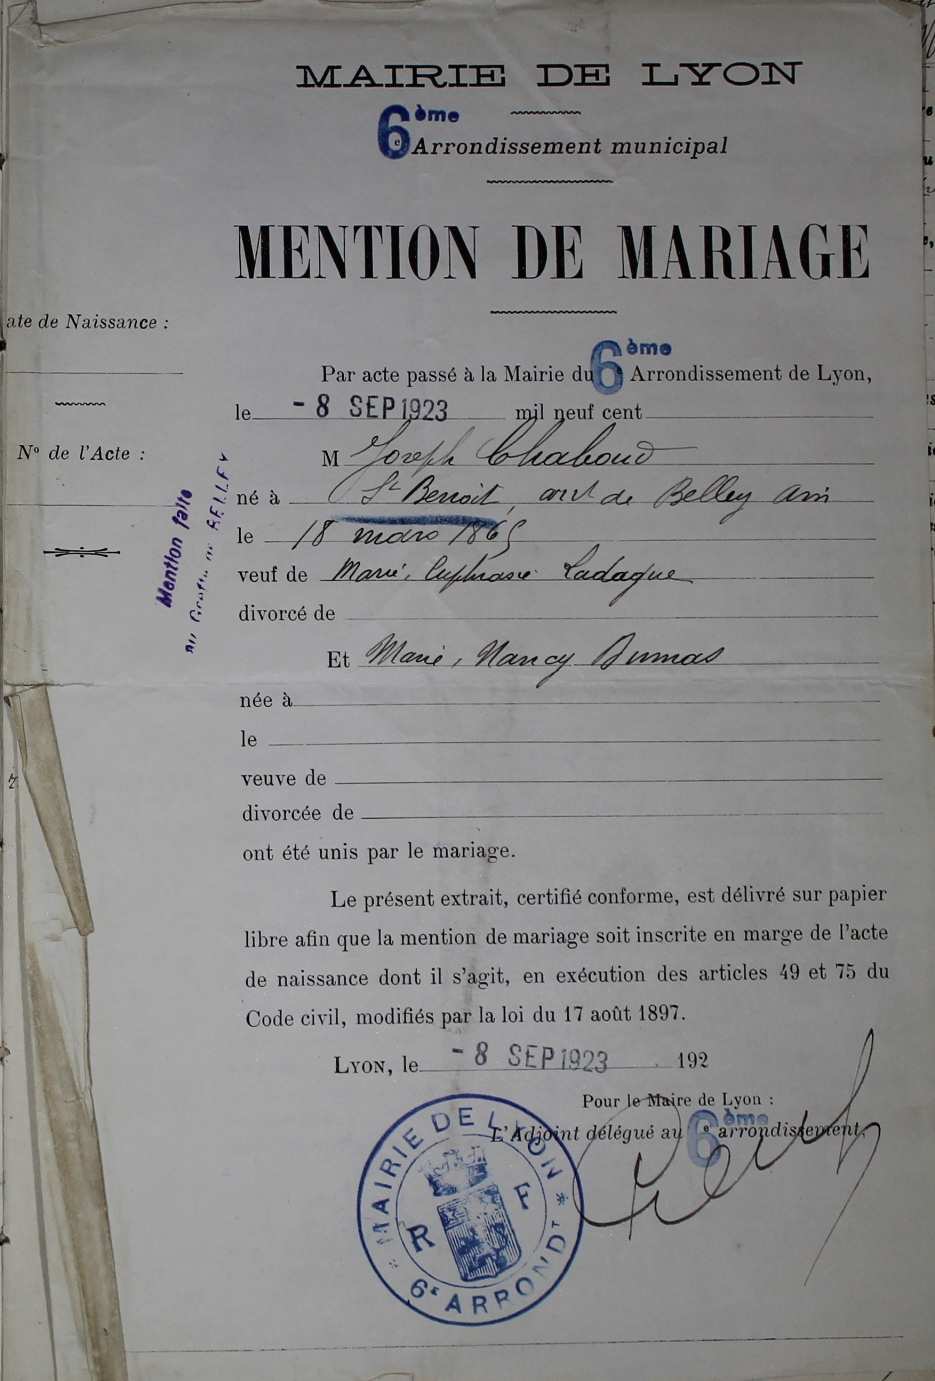 MAIRIE DE LYON
6ème
e Arrondissement municipal
MENTION DE MARIAGE
ate de Naissance :
Par acte passé à la Mairie du 6ème Arrondissement de Lyon,
le - 8 SEP 1923 mil neuf cent
N° de l'Acte :
M Joseph Chaboud
né à St Benoit, arrt de Belley Ain
le 18 mars 1865
veuf de Marie, Euphrasie Ladaque
divorcé de
Mention faite
au Greffe de BELLEY
Et Marie, Nancy Dumas
née à
le
veuve de
divorcée de
ont été unis par le mariage.
Le présent extrait, certifié conforme, est délivré sur papier
libre afin que la mention de mariage soit inscrite en marge de l'acte
de naissance dont il s'agit, en exécution des articles 49 et 75 du
Code civil, modifiés par la loi du 17 août 1897.
LYON, le - 8 SEP 1923 192
Pour le Maire de Lyon :
L'Adjoint délégué au 6ème e arrondissement,
MAIRIE DE LYON
R F
6E ARRONDT